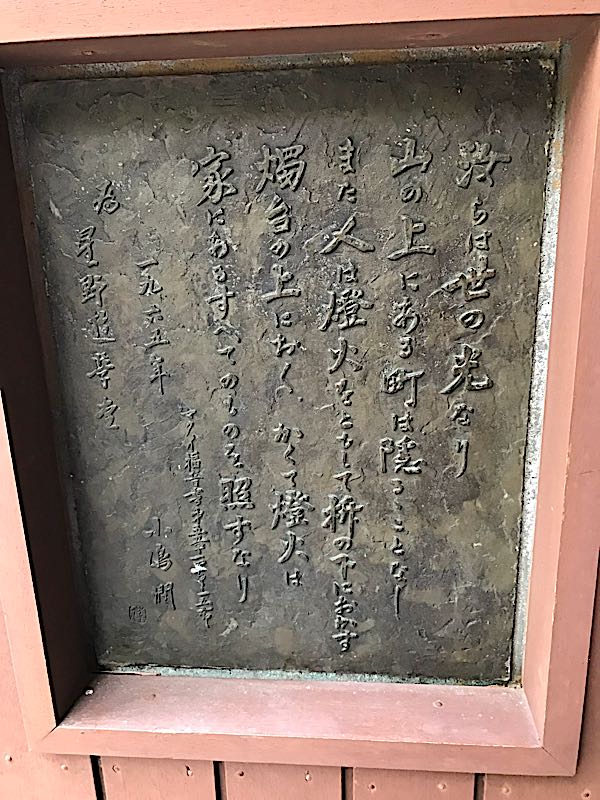 汝らは世の光なり
山の上にある町は隠るることなし
また人は燈火をともして枡の下におかず
燭台の上におく、かくて燈火は
家にあるすべてのものを照すなり
マタイ福音書第五章
一九六五年
小嶋潤
為 星野温泉